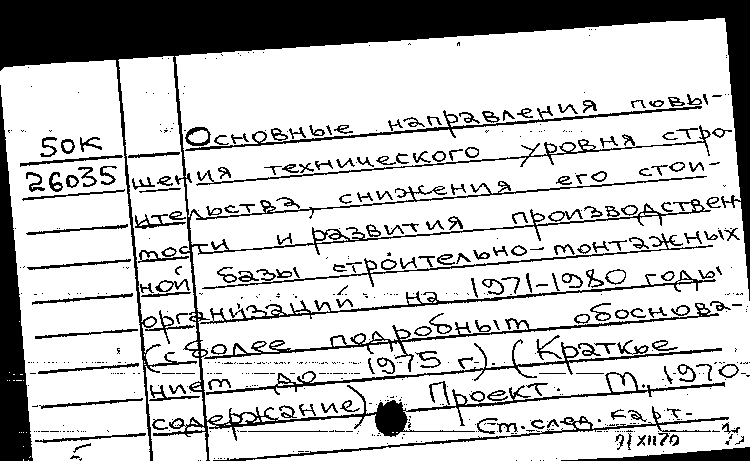 50К
26035
Основные направления повы-
шения технического уровня стро-
ительства, снижения его стои-
мости и развития производствен-
ной базы строительно-монтажных
организаций на 1971-1980 годы
(с более подробным обоснова-
нием до 1975 г.). (Краткое
содержание) Проект. М., 1970.
См. след. карт.